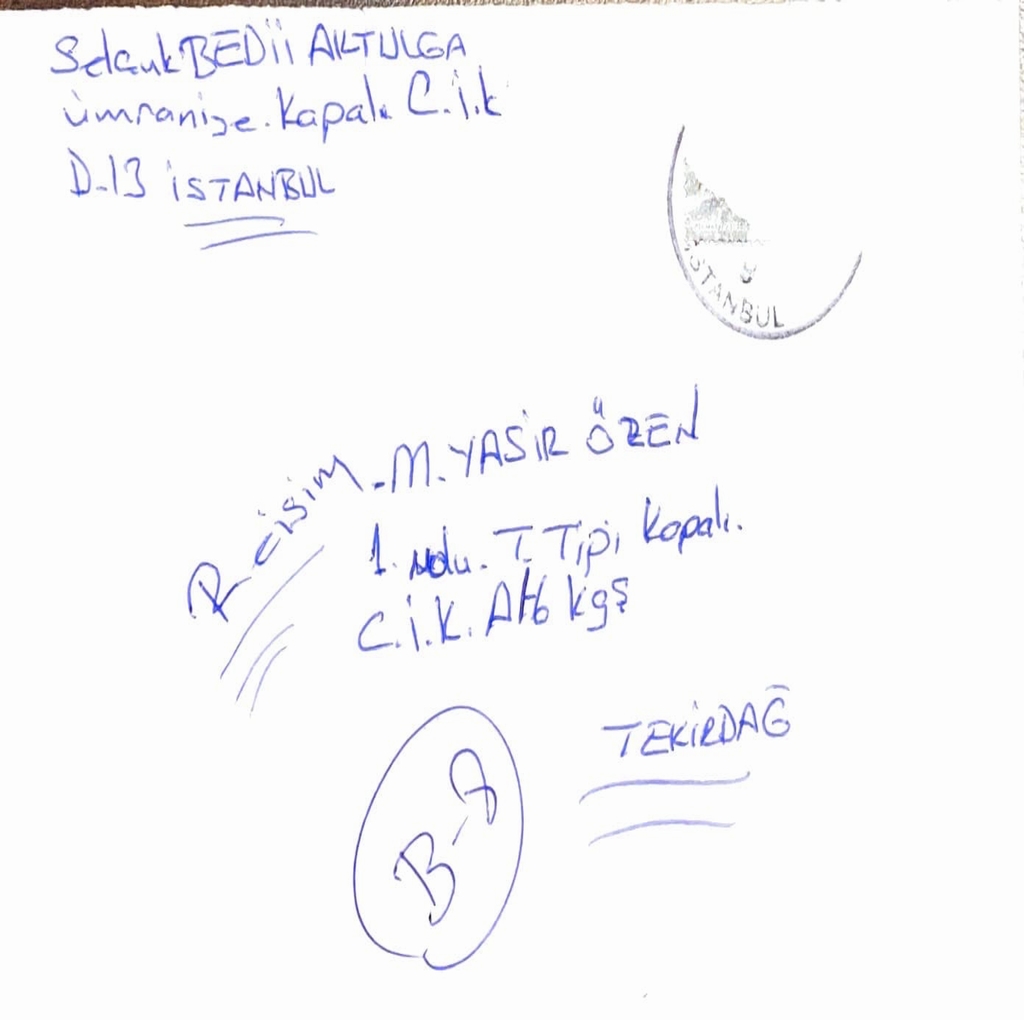 Selcuk BEDİİ AKTULGA
ümraniye. Kapalı C.i.k
D-13 İSTANBUL
İSTANBUL
-M. YASİR ÖZEN
1. T. Tipi Kapalı.
C.İ.K.
TEKİRDAĞ